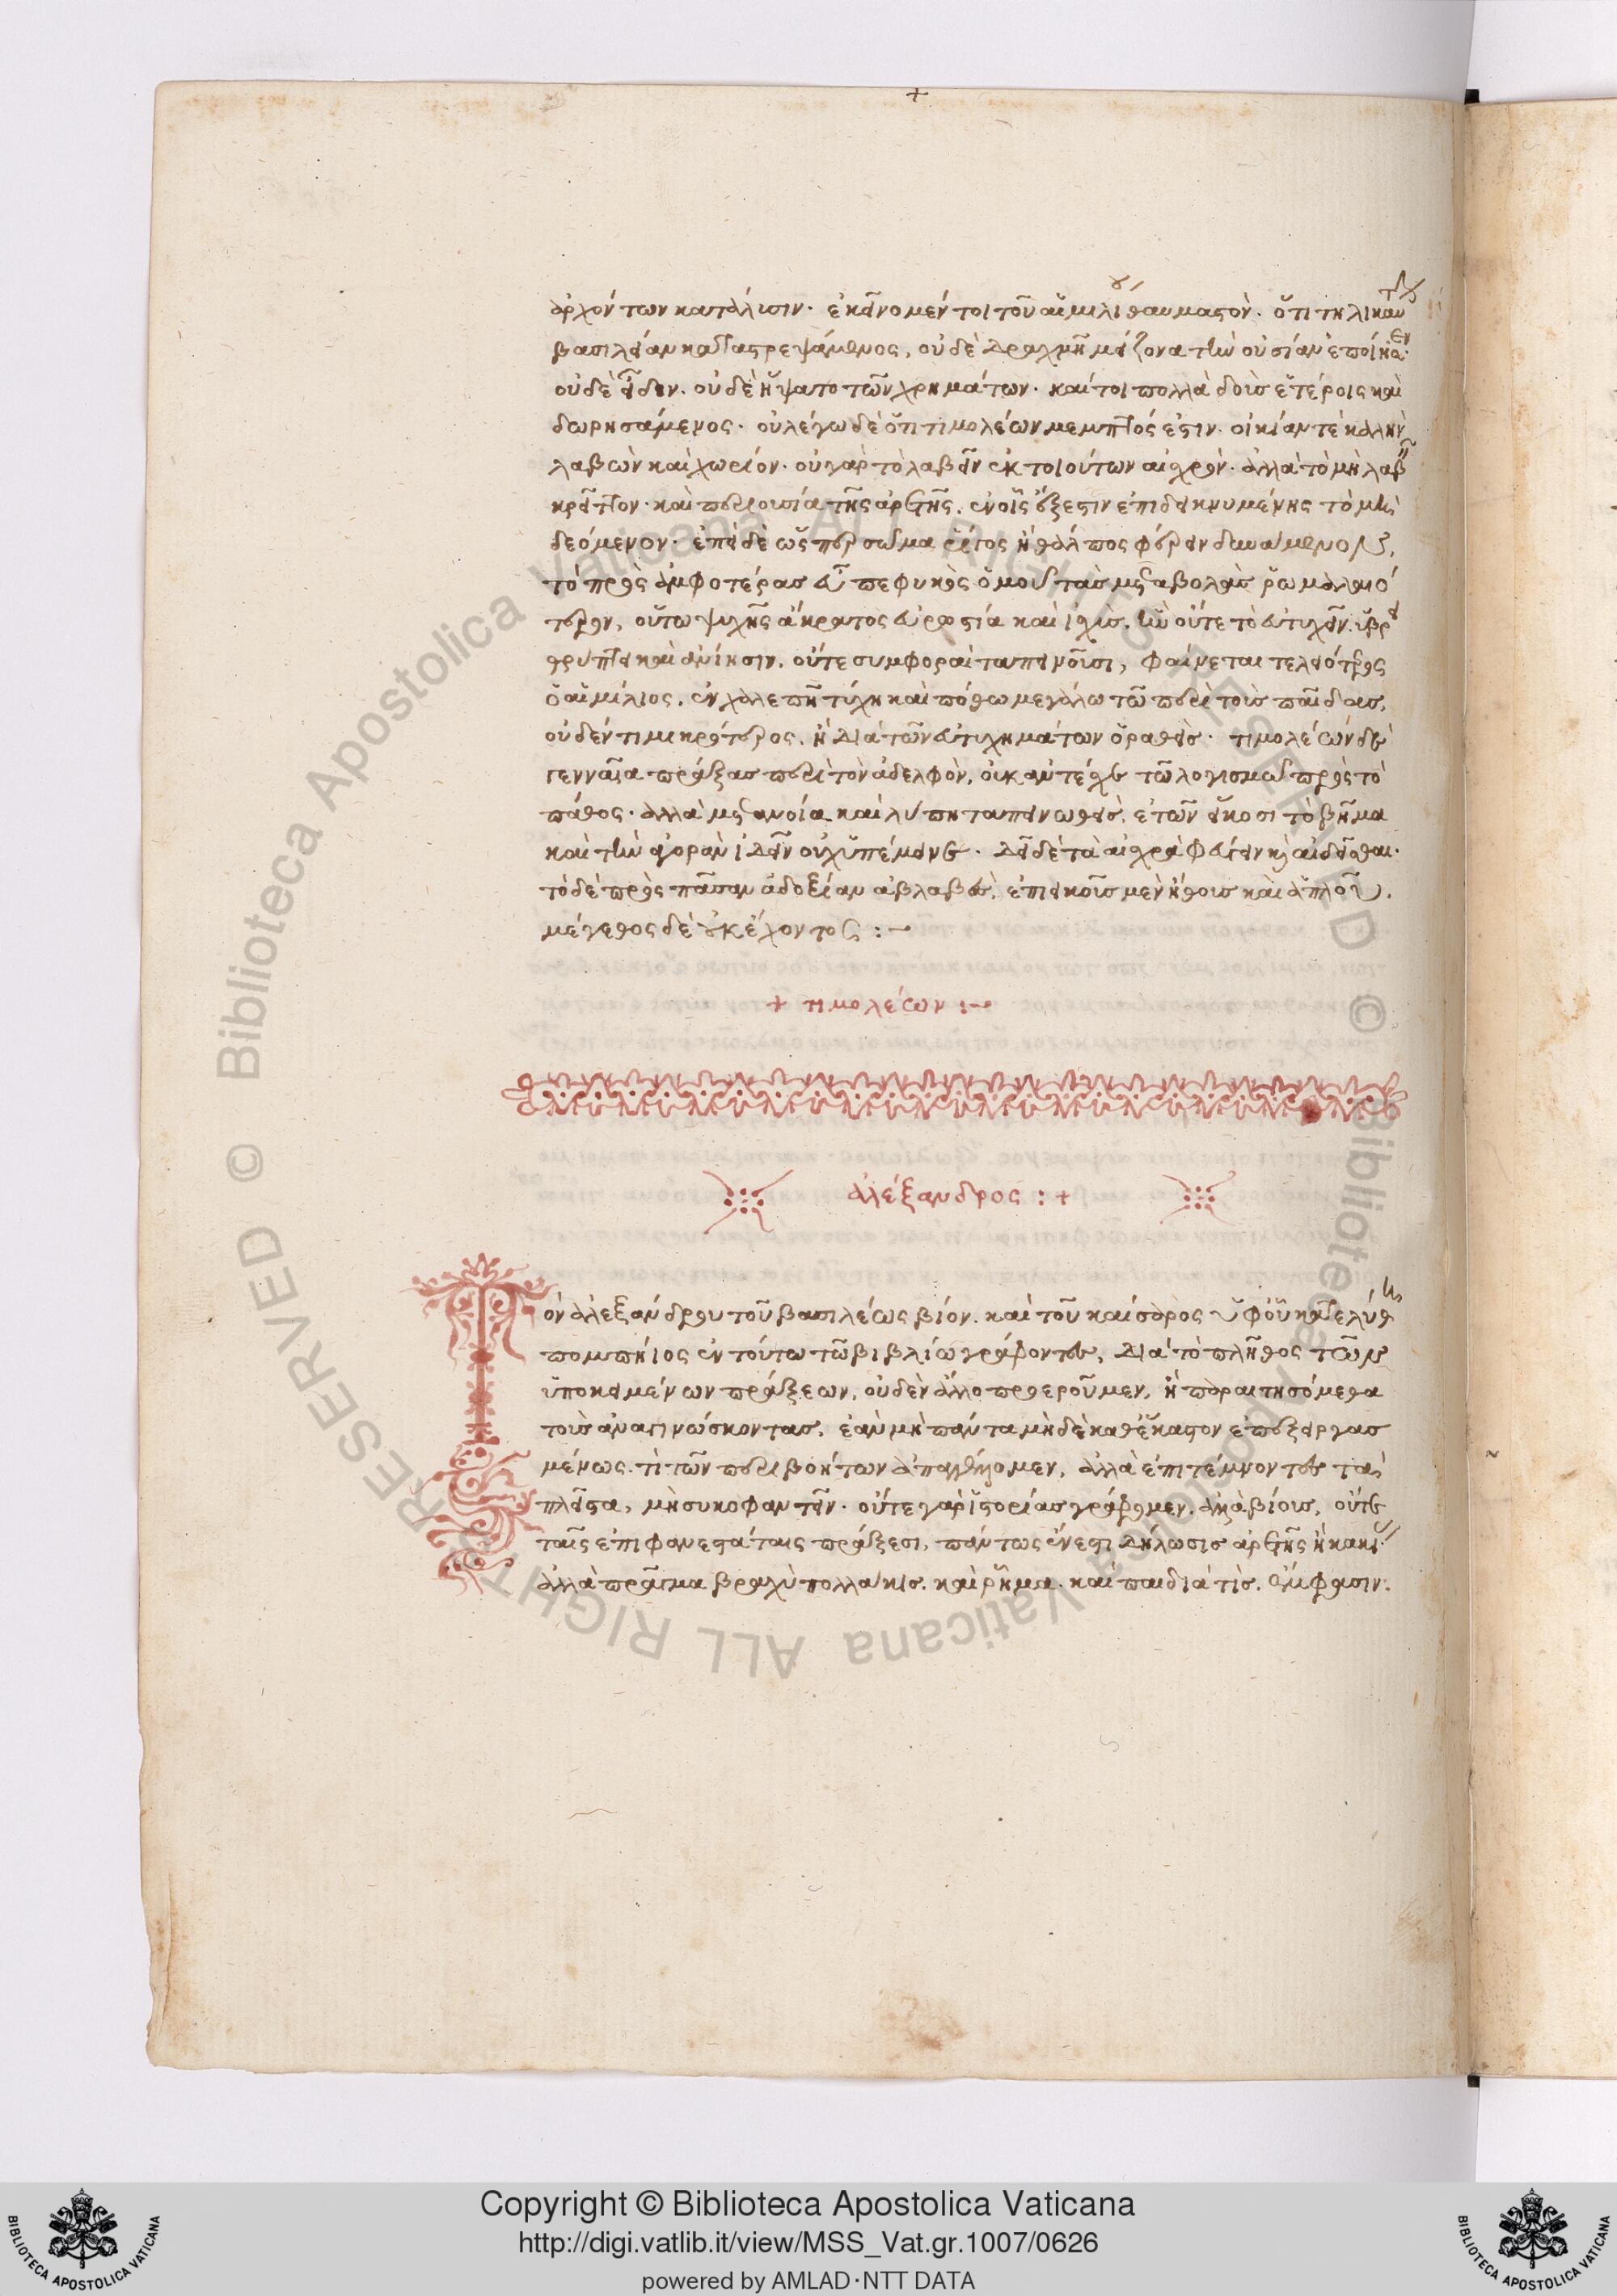 ἀρχόντων κατάλυσιν· ἐκεῖνο μέντοι τοῦ αἰμιλίου θαυμαστὸν· ὅτι τηλικαύτην
βασιλείαν καταστρεψάμενος, οὐδὲ δραχμῇ μείζονα τὴν οὐσίαν ἐποίησεν·
οὐδὲ εἶδεν. οὐδὲ ἥψατο τῶν χρημάτων· καίτοι πολλὰ δοὺς ἑτέροις καὶ
δωρησάμενος· οὐ λέγω δὲ ὅτι τιμολέων μεμπτός ἐστιν. οἰκίαν τὲ καλὴν
λαβὼν καὶ χωρίον· οὐ γὰρ τὸ λαβεῖν ἐκ τοιούτων αἰσχρὸν· ἀλλὰ τὸ μὴ λαβεῖν
κρεῖττον· καὶ περιουσία τῆς ἀρετῆς. ἐν οἷς ἔξεστιν ἐπιδεικνυμένης τὸ μὴ
δεόμενον· ἐπεὶ δὲ ὡς περ σώματος κρύος ἢ θάλπος φέρειν δυναμένου,
τὸ πρὸς ἀμφοτέρας εὖ πεφυκὸς ὁμοῦ τὰς μεταβολὰς ῥωμαλεώ
τερον, οὕτω ψυχῆς ἄκρατος εὐρωστία καὶ ἰσχὺς. ἣν οὔτε τὸ εὐτυχεῖν ὕβρει
θρύπτει καὶ ἀνίησιν. οὔτε συμφοραὶ ταπεινοῦσι, φαίνεται τελειότερος
ὁ αἰμίλιος. ἐν χαλεπῇ τύχῃ καὶ πόθω μεγάλω τῶ περὶ τοὺς παῖδας,
οὐδέν τι μικρότερος. ἢ διὰ τῶν εὐτυχημάτων ὁραθεὶς· τιμολέων δὲ
γενναῖα πράξας περὶ τὸν ἀδελφὸν, οὐκ ἀντέσχε τῶ λογισμῶ πρὸς τὸ
πάθος· ἀλλὰ μετανοία καὶ λύπη ταπεινωθεὶς. ἐτῶν εἴκοσι τὸ βῆμα
καὶ τὴν ἀγορὰν ἰδεῖν οὐχ ὑπέμεινε· δεῖ δὲ τὰ αἰσχρὰ φεύγειν καὶ αἰδεῖσθαι·
τὸ δὲ πρὸς πᾶσαν ἀδοξίαν εὐλαβὲς, ἐπιεικοῦς μὲν ἤθους καὶ ἁπλοῦ.
μέγεθος δὲ οὐκ ἔχοντος :–
+ τιμολέων :–
ἀλέξανδρος : +
Τὸν ἀλεξάνδρου τοῦ βασιλέως βίον. καὶ τοῦ καίσαρος ὑφ' οὗ κατελύθη
πομπήιος ἐν τούτω τῶ βιβλίω γράφοντες, διὰ τὸ πλῆθος τῶν
ὑποκειμένων πράξεων, οὐδὲν ἄλλο προεροῦμεν, ἢ παραιτησόμεθα
τοὺς ἀναγινώσκοντας. ἐὰν μὴ πάντα μὴ δὲ καθ' ἕκαστον ἐπεξειργασ
μένως. τὶ τῶν περιβοήτων ἀπαγγέλλομεν, ἀλλὰ ἐπιτέμνοντες τὰ
πλεῖστα, μὴ συκοφαντεῖν· οὔτε γὰρ ἱστορίας γράφομεν. ἀλλὰ βίους, οὔτε
ταῖς ἐπιφανεστάταις πράξεσι, πάντως ἔνεστι δήλωσις ἀρετῆς ἢ κακίας·
ἀλλὰ πρᾶγμα βραχὺ πολλάκις. καὶ ῥῆμα· καὶ παιδιά τὶς. ἔμφασιν.
Copyright © Biblioteca Apostolica Vaticana
http://digi.vatlib.it/view/MSS_Vat.gr.1007/0626
powered by AMLAD·NTT DATA